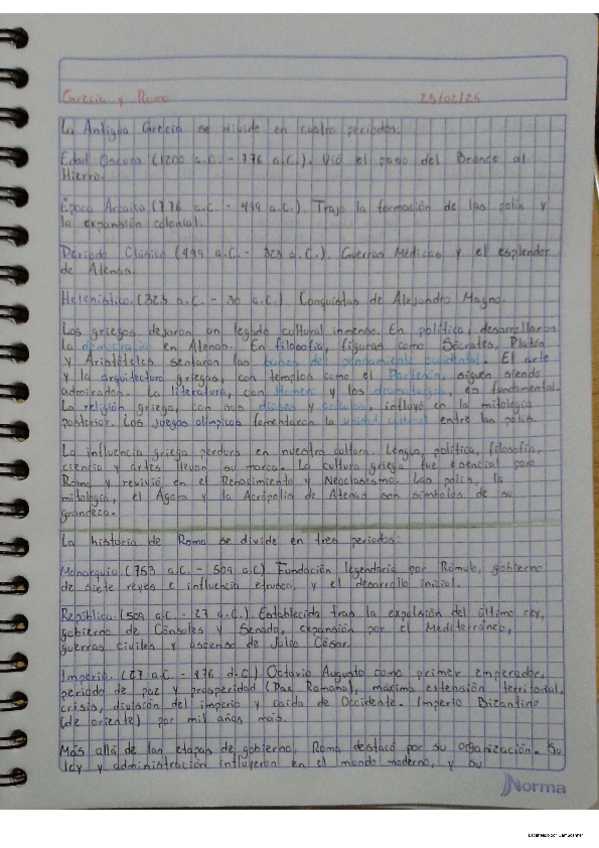 Grecia y Roma 25/02/25
La Antigua Grecia se divide en cuatro periodos.
Edad Oscura (1200 a.C. - 776 a.C.). Vió el paso del Bronce al
Hierro.
Época Arcaica (776 a.C. - 499 a.C.). Trajo la formación de las polis y
la expansión colonial.
Periodo Clásico (499 a.C. - 323 a.C.). Guerras Médicas y el esplendor
de Atenas.
Helenístico (323 a.C. - 30 a.C.) Conquistas de Alejandro Magno.
Los griegos dejaron un legado cultural inmenso. En política, desarrollaron
la democracia en Atenas. En filosofía, figuras como Sócrates, Platón
y Aristóteles sentaron las bases del pensamiento occidental. El arte
y la arquitectura griegos, con templos como el Partenón, siguen siendo
admirados. La literatura, con Homero y los dramaturgos, es fundamental.
La religión griega, con sus dioses y, influyó en la mitología
posterior. Los juegos olímpicos fomentaron la unidad cultural entre las polis.
La influencia griega perdura en nuestra cultura. Lengua, política, filosofía,
ciencia y artes llevan su marca. La cultura griega fue esencial para
Roma y revivió en el Renacimiento y Neoclasismo. Las polis, la
mitología, el Ágora y la Acrópolis de Atenas son símbolos de su
grandeza.
La historia de Roma se divide en tres periodos:
Monarquía (753 a.C. - 509 a.C) Fundación legendaria por Rómulo, gobierno
de siete reyes e influencia etrusca, y el desarrollo inicial.
República (509 a.C. - 27 a.C.) Establecida tras la expulsión del último rey,
gobierno de Cónsules y Senado, expansión por el Mediterráneo,
guerras civiles y ascenso de Julio César.
Imperio. (27 a.C. - 476 d.C.) Octavio Augusto como primer emperador,
periodo de paz y prosperidad (Pax Romana), máxima extensión territorial,
crisis, división del imperio y caída de Occidente. Imperio Bizantino
(de oriente) por mil años más.
Más allá de las etapas de gobierno, Roma destacó por su organización. Su
ley y administración influyeron en el mundo moderno, y su
Norma